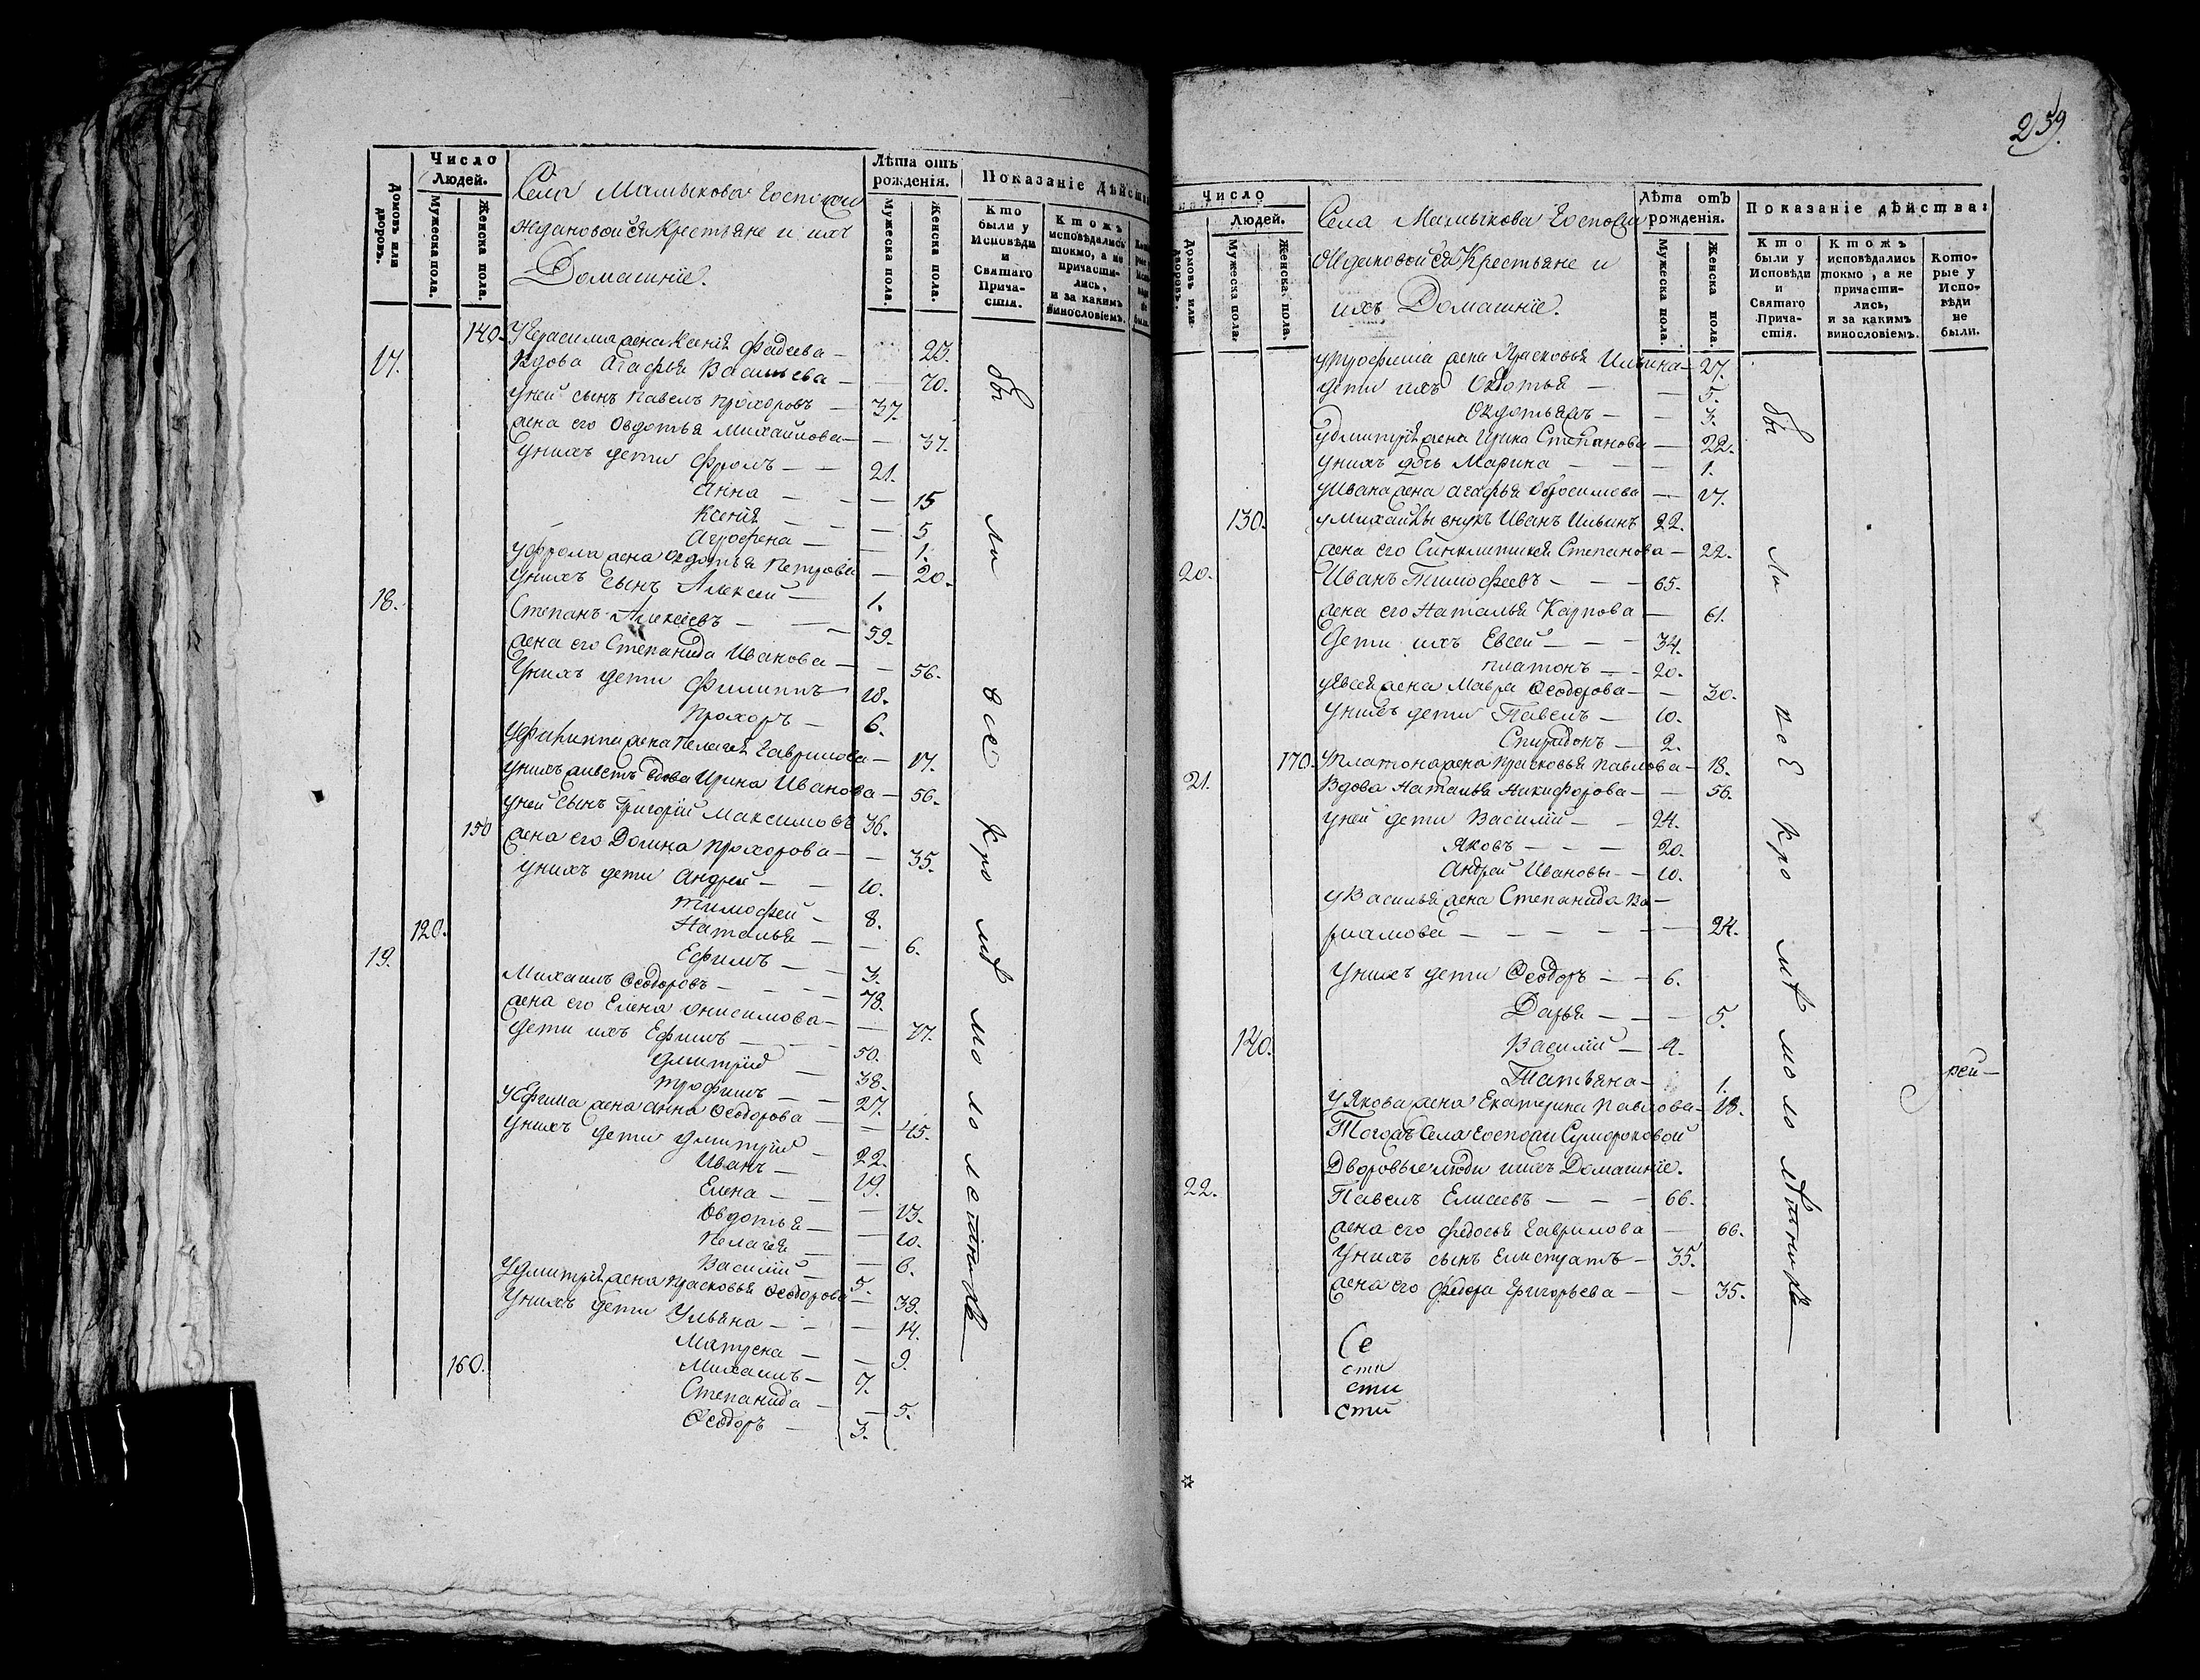 Число
Людей.
Домовъ или дворовъ.
Мужеска пола.
Женска пола.
Села Мамыкова Госпожи
Ждановой Крестьяне и ихъ
Домашніе.
Лѣта отъ
рожденія.
Мужеска пола.
Женска пола.
Показаніе дѣйств
Кто
были у
Исповѣди
и
Святаго
Прича-
стія.
Ктожъ
исповѣдались
токмо, а не
причасти-
лись,
и за какимъ
винословіемъ.
140. У Герасима жена Ксенія Фадеева — 23.
17. Вдова Агафья Васильева — — 70.
У ней сынъ Павелъ Прохоровъ — 37.
жена его Овдотья Михайлова — — 37.
У нихъ дети Фролъ — — 21.
Анна — — — 15
Ксенія — — — 5
Агрофена — — 1.
У Фрола жена Овдотья Петрова — 20.
У нихъ сынъ Алексей — 1.
18. Степанъ Алексеевъ — — — 59.
жена его Степанида Иванова — — 56.
У нихъ дети Филиппъ — 18.
Прохоръ — 6.
У Филиппа жена Пелагея Гаврилова — 17.
У нихъ живетъ вдова Ирина Иванова — 56.
У ней сынъ Григорій Максимовъ 36.
150 жена его Домна Прохорова — — 35.
У нихъ дети Андрей — — 10.
Тимофей — 8.
120. Наталья — — 6.
Ефимъ — — 3.
19. Михаилъ Ѳеодоровъ — — — — 78.
жена его Елена Онисимова — — 77.
дети ихъ Ефимъ — — — 50.
Дмитрій — 38.
Трофимъ — — 27.
У Ефима жена Анна Ѳеодорова — — 45.
У нихъ дети Дмитрій — 22.
Иванъ — 19.
Елена — — — 13.
Овдотья — — 10.
Пелагея — — 6.
Василій — 5.
У Дмитрія жена Прасковья Ѳеодорова — 39.
У нихъ дети Ульяна — — — 14.
Матрена — — 9.
160. Михаилъ — 7.
Степанида — — 5.
Ѳеодоръ — 3.
бы ли всѣ кро мѣ мо ло летнихъ
259.
Число
Людей.
Домовъ или дворовъ.
Мужеска пола.
Женска пола.
Села Мамыкова Госпожи
Ждановой Крестьяне и
ихъ Домашніе.
Лѣта отъ
рожденія.
Мужеска пола.
Женска пола.
Показаніе дѣйства:
Кто
были у
Исповѣди
и
Святаго
Прича-
стія.
Ктожъ
исповѣдались
токмо, а не
причасти-
лись,
и за какимъ
винословіемъ.
Кото-
рые у
Испо-
вѣди
не
были.
У Трофима жена Прасковья Ильина — 27.
дети ихъ Овдотья — — 5.
Овдотьяжъ — — 3.
У Дмитрія жена Ирина Степанова — 22.
У нихъ дочь Марина — — — 1.
У Ивана жена Агафья Обросимова — 17.
130. У Михайлы внукъ Иванъ Ильинъ 22.
жена его Синклитикея Степанова — 22.
20. Иванъ Тимофеевъ — — — 65.
жена его Наталья Карпова — 61.
Дети ихъ Евсей — — — 34.
Платонъ — — 20.
У Евсея жена Мавра Ѳеодорова — — 30.
У нихъ дети Павелъ — 10.
Спиридонъ — 2.
170. У Платона жена Прасковья Павлова — 18.
21. Вдова Наталья Никифорова — — 56.
У ней дети Василій — — 24.
Яковъ — — — 20.
Андрей Ивановы — — 10.
У Василья жена Степанида Ва —
— — — — — — 24.
У нихъ дети Ѳеодоръ — — 6.
Дарья — — — 5.
140. Василій — 4.
Татьяна — 1.
У Якова жена Екатерина Павлова — 18.
Тогожъ Села Госпожи Сумароковой
Дворовые люди и ихъ Домашніе.
22. Павелъ Елисеевъ — — — 66.
жена его Федосья Гаврилова — 66.
У нихъ сынъ Елистратъ — 35.
жена его Федора Григорьева — — 35.
Се
сти
сти
сти
бы ли кро мѣ мо ло лѣтнихъ
рей —